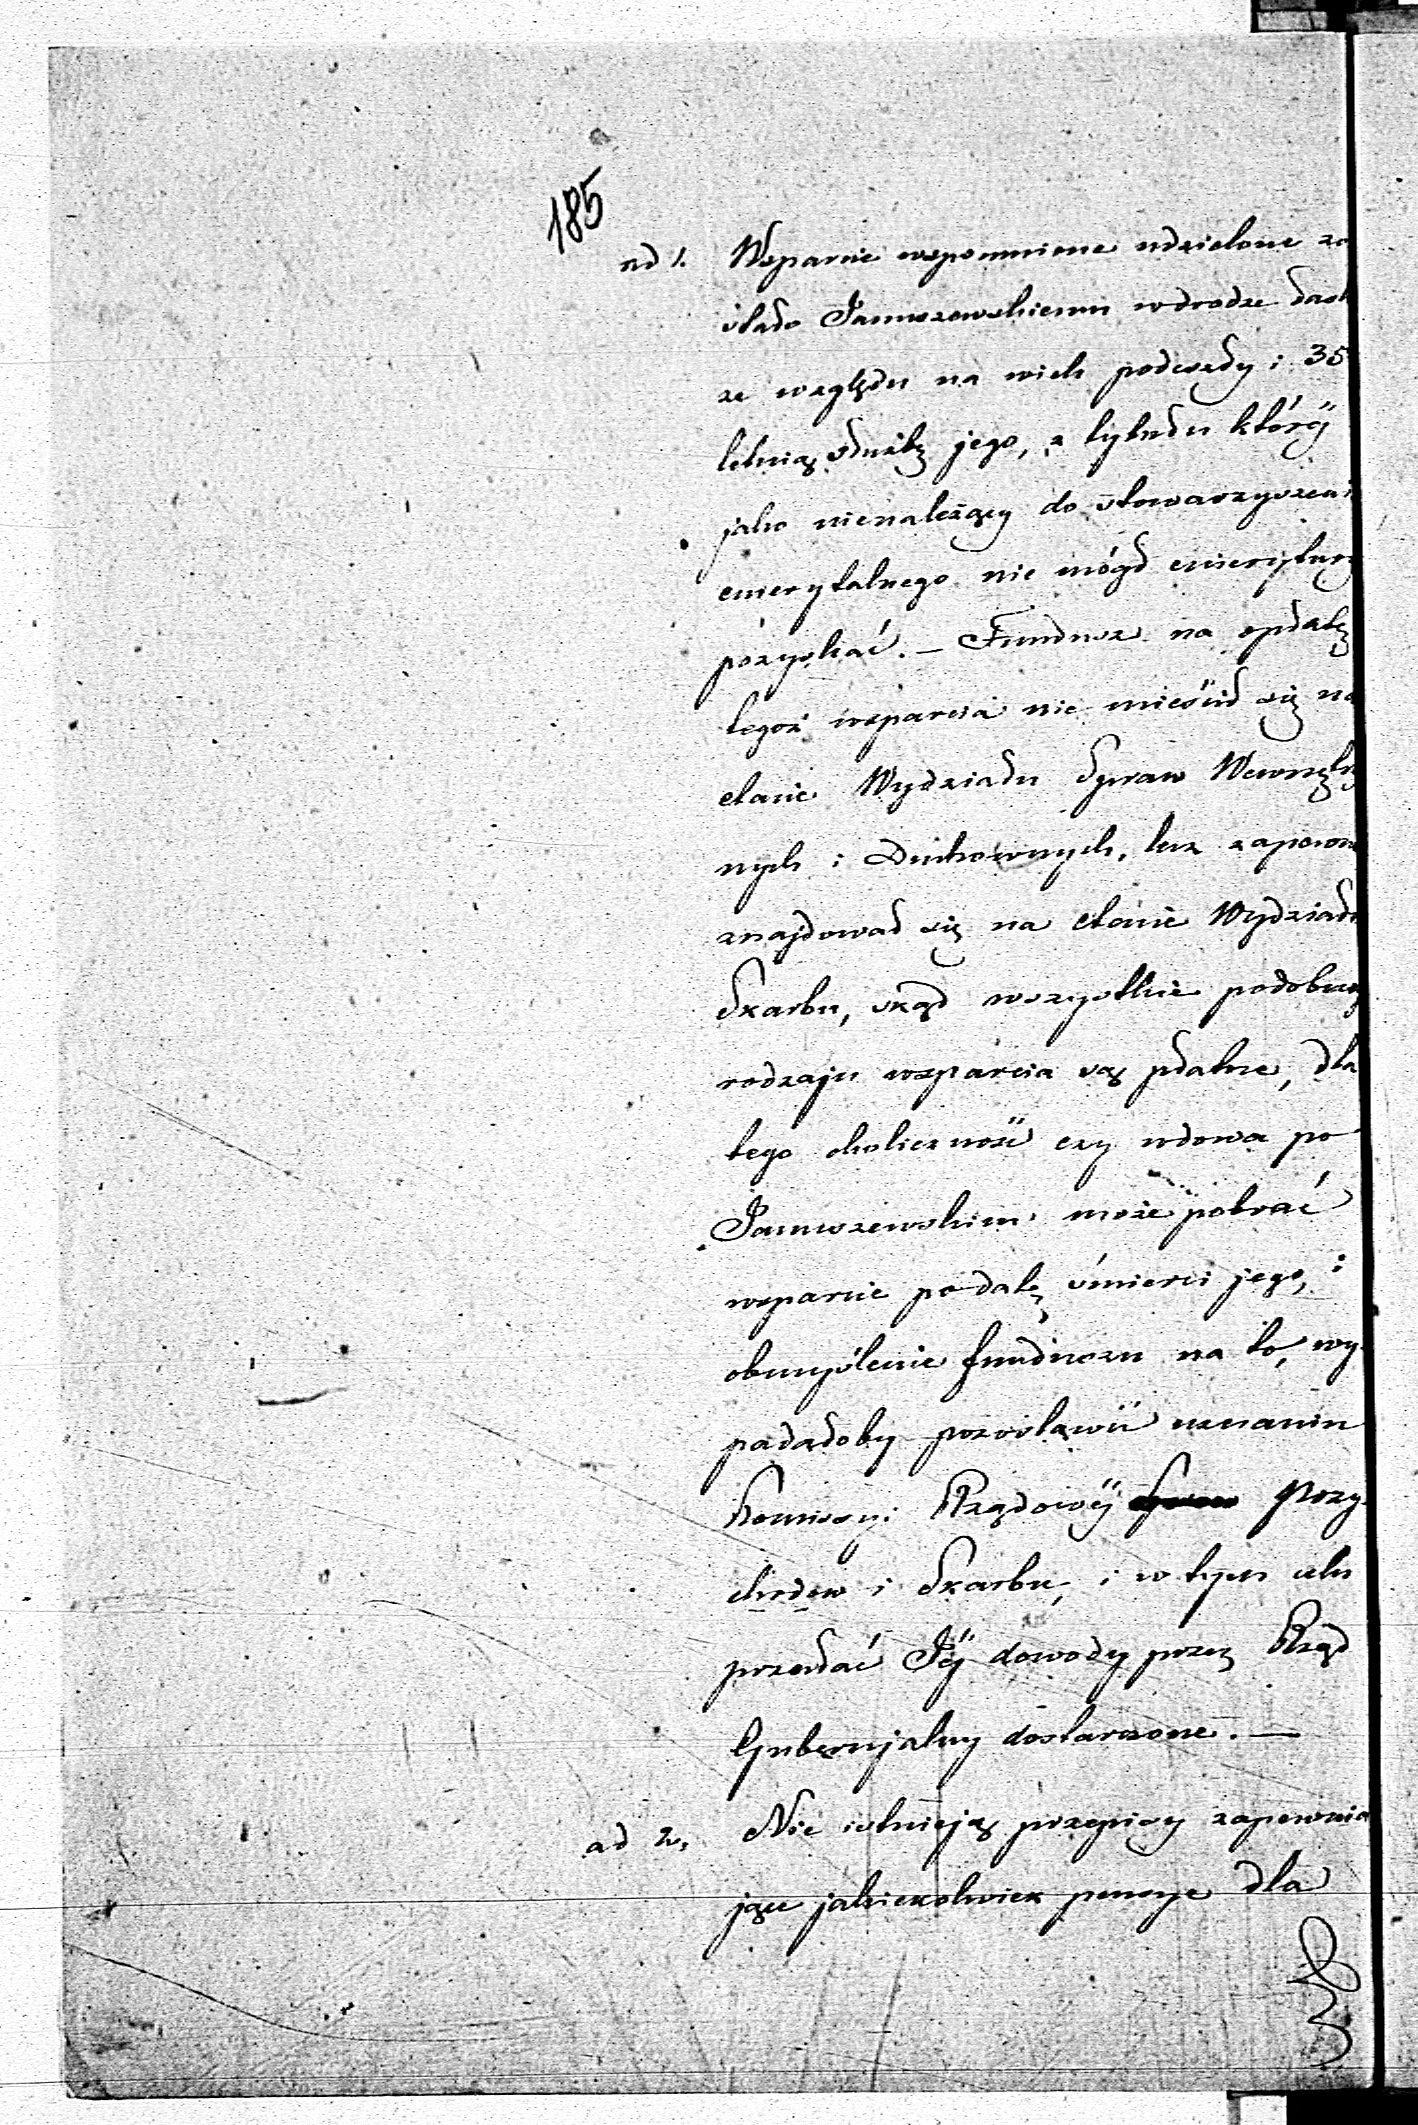 185
ad 1. Wsparcie wspomnione udzielone zo
stało Januszewskiemu w drodze łask
ze względu na wiek podeszły i 35
letnią służbę jego, z tytułu któréj
jako nienależący do stowarzyszeni
emerytalnego nie mógł emerytury
pozyskać. — Fundusz na opłatę
tegoż wsparcia nie mieścił się na
etacie Wydziału Spraw Wewnętrz
nych i Duchownych, lecz zapewne
znajdował się na etacie Wydziału
Skarbu, skąd wszystkie podobneg
rodzaju wsparcia są płatne, dla
tego okoliczność czy wdowa po
Januszewskim może pobrać
wsparcie po datę śmierci jego, i
obmyślenie funduszu na to, wy-
padałoby pozostawić uznaniu
Kommisyi Rządowéj Przy-
chodów i Skarbu, i w tym celu
przesłać Jéj dowody przez Rząd
Gubernjalny dostarczone. —
ad 2. Nie istnieją przepisy zapewnia
jące jakiekolwiek pensye dla